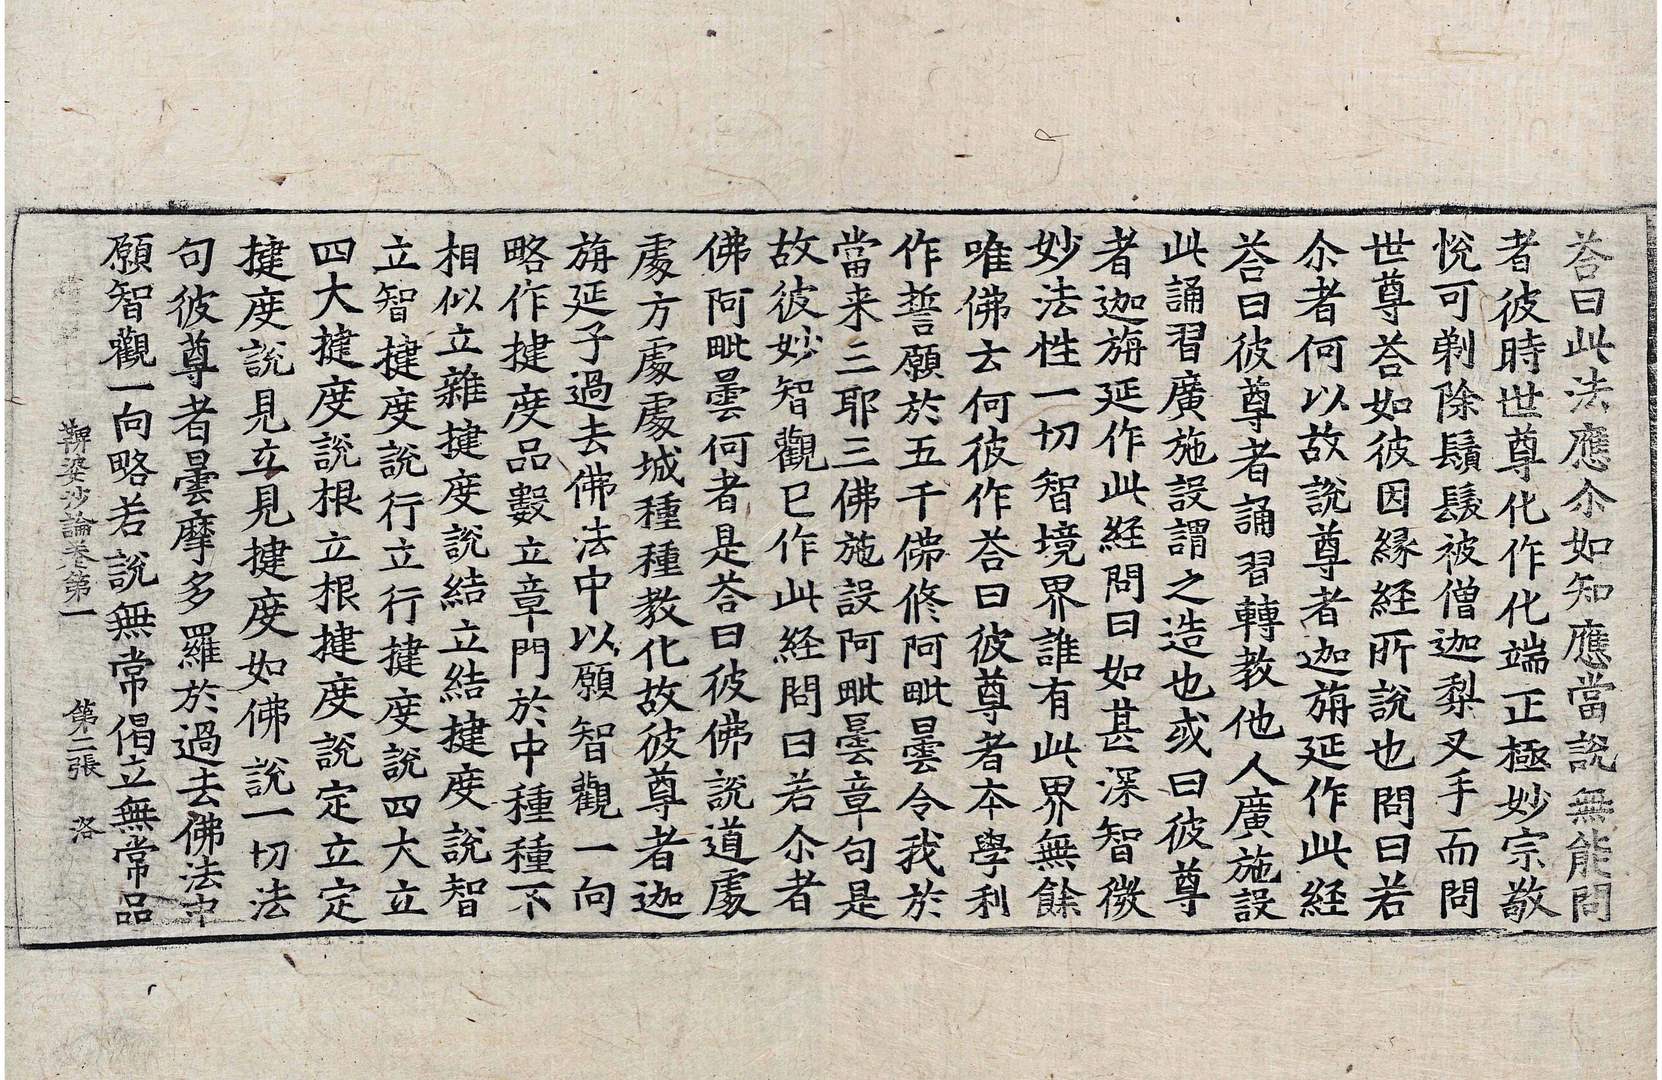 荅曰此法應尒如知應當說無能問
者彼時世尊化作化端正極妙宗敬
悅可剃除鬚髮被僧迦梨叉手而問
世尊荅如彼因緣經所說也問曰若
尒者何以故說尊者迦旃延作此經
荅曰彼尊者誦習轉教他人廣施設
此誦習廣施設謂之造也或曰彼尊
者迦旃延作此經問曰如甚深智微
妙法性一切智境界誰有此界無餘
唯佛去何彼作荅曰彼尊者本學利
作誓願於五千佛修阿毗曇令我於
當来三耶三佛施設阿毗曇章句是
故彼妙智觀已作此經問曰若尒者
佛阿毗曇何者是荅曰彼佛說道處
處方處處城種種教化故彼尊者迦
旃延子過去佛法中以願智觀一向
略作揵度品數立章門於中種種不
相似立雜揵度說結立結揵度說智
立智揵度說行立行揵度說四大立
四大揵度說根立根揵度說定立定
揵度說見立見揵度如佛說一切法
句彼尊者曇摩多羅於過去佛法中
願智觀一向略若說無常偈立無常品
鞞婆沙論卷第一 第二張 洛